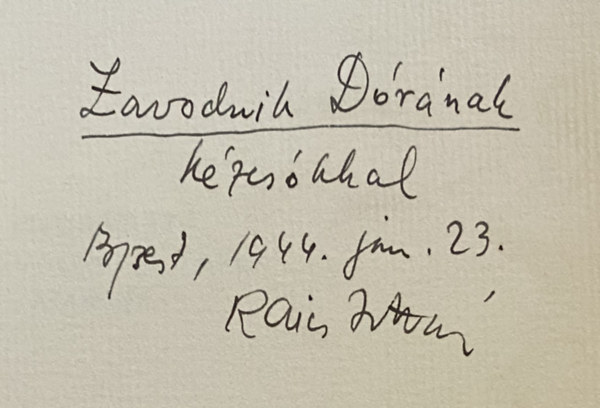 Zavodnik Dórának
kézcsókkal
Bpest, 1944. jan. 23.
Raics István